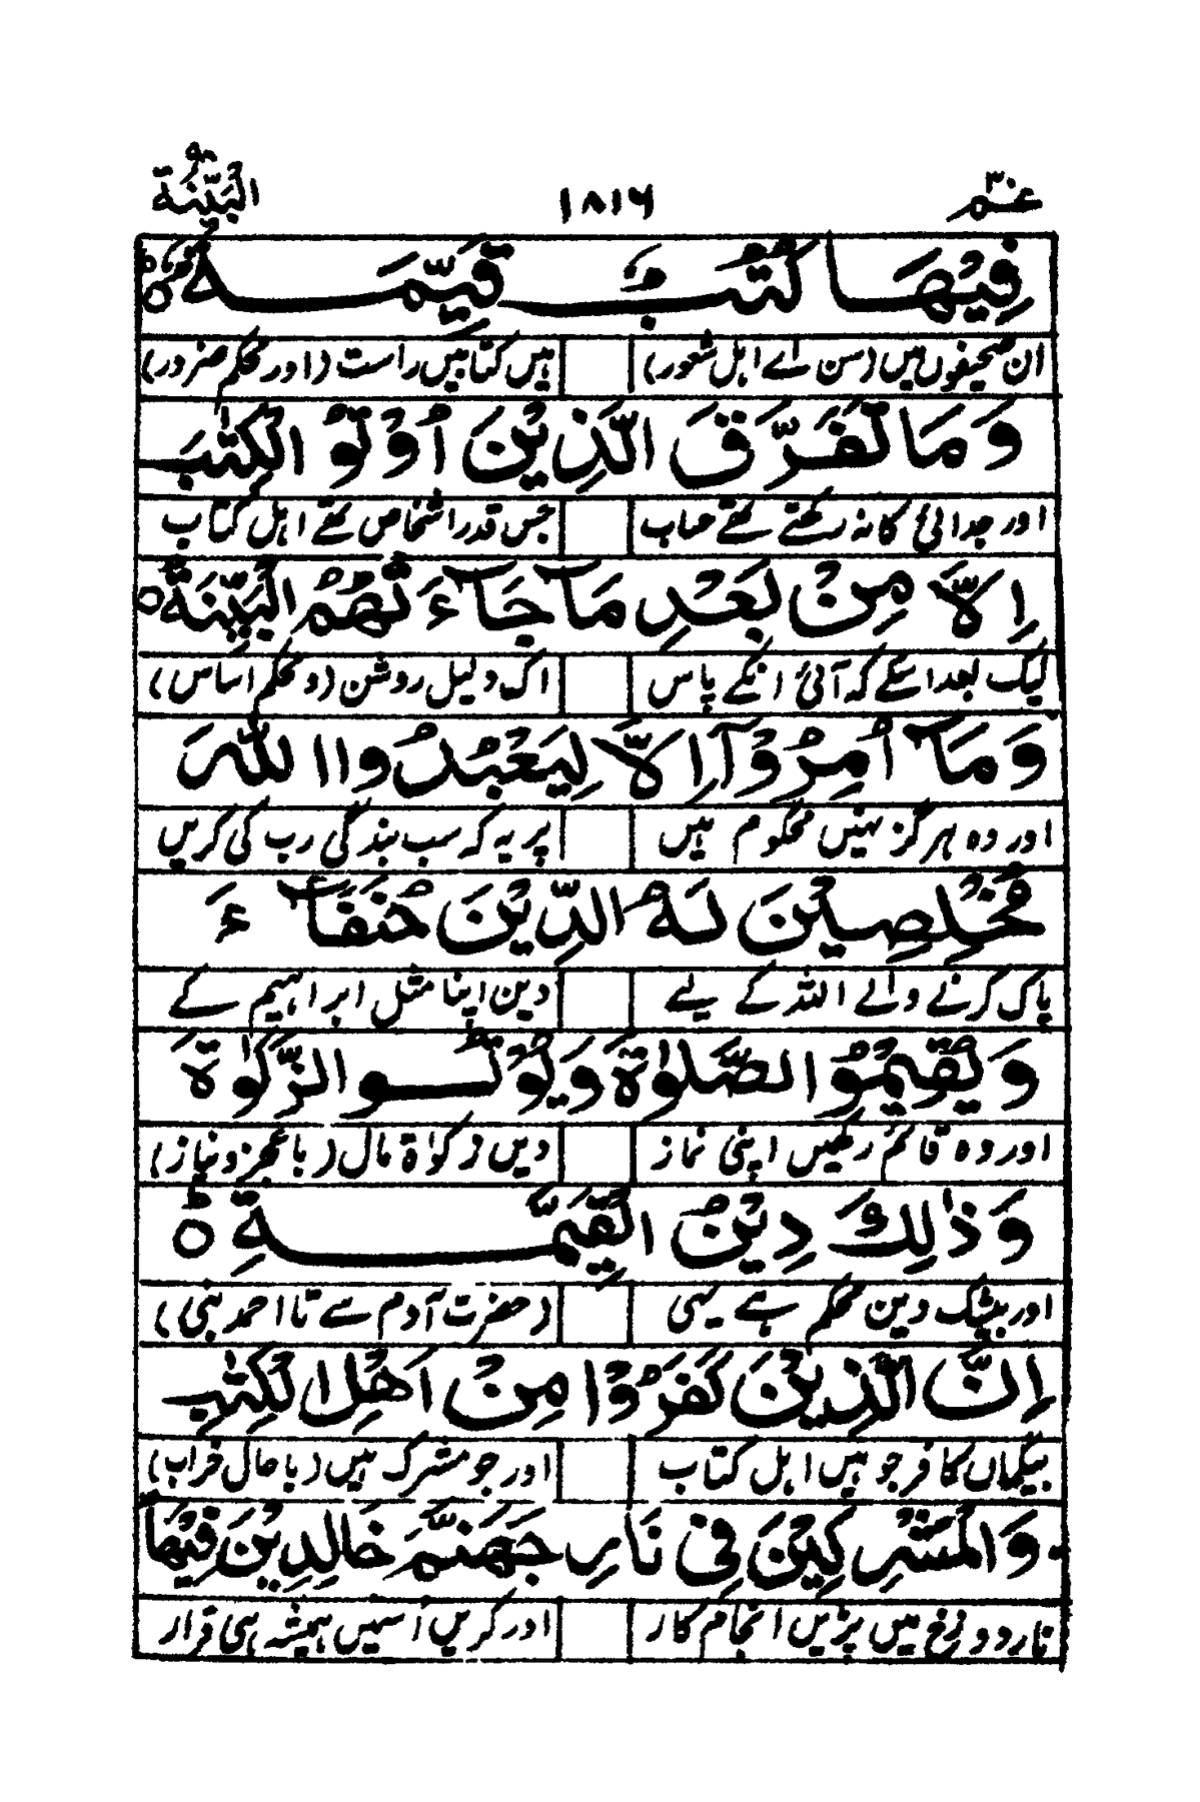 عمّ ۳۰ ۱۸۱۶ البيّنة ۹۸
فِيهَا كُتُبٌ قَيِّمَةٌ ○
ان صحیفوں میں (سن اے اہل شعور) ہیں کتابیں راست (اور محکم ضرور)
وَمَا تَفَرَّقَ الَّذِيْنَ اُوْتُوا الْكِتٰبَ
اور جدائی کا نہ رکھتے تھے حساب جس قدر اشخاص تھے اہل کتاب
اِلَّا مِنْ بَعْدِ مَا جَآءَتْهُمُ الْبَيِّنَةُ ○
لیک بعد اسکے کہ آئی انکے پاس اک دلیل روشن (و محکم اساس)
وَمَآ اُمِرُوْٓا اِلَّا لِيَعْبُدُوا اللّٰهَ
اور وہ ہرگز نہیں محکوم ہیں پر یہ کہ سب بندگی رب کی کریں
مُخْلِصِيْنَ لَهُ الدِّيْنَ حُنَفَآءَ
پاک کرنے والے اللہ کے لیے دین اپنا مثل ابراہیم کے
وَيُقِيْمُوا الصَّلٰوةَ وَيُؤْتُوا الزَّكٰوةَ
اور وہ قائم رکھیں اپنی نماز دیں زکوٰۃ مال (با عجز و نیاز)
وَذٰلِكَ دِيْنُ الْقَيِّمَةِ ○
اور بیشک دین محکم ہے یہی (حضرت آدم سے تا احمد نبی)
اِنَّ الَّذِيْنَ كَفَرُوْا مِنْ اَهْلِ الْكِتٰبِ
بیگماں کافر جو ہیں اہل کتاب اور جو مشرک ہیں (با حال خراب)
وَالْمُشْرِكِيْنَ فِيْ نَارِ جَهَنَّمَ خَالِدِيْنَ فِيْهَا
نار دوزخ میں پڑیں انجام کار اور کریں اسمیں ہمیشہ ہی قرار